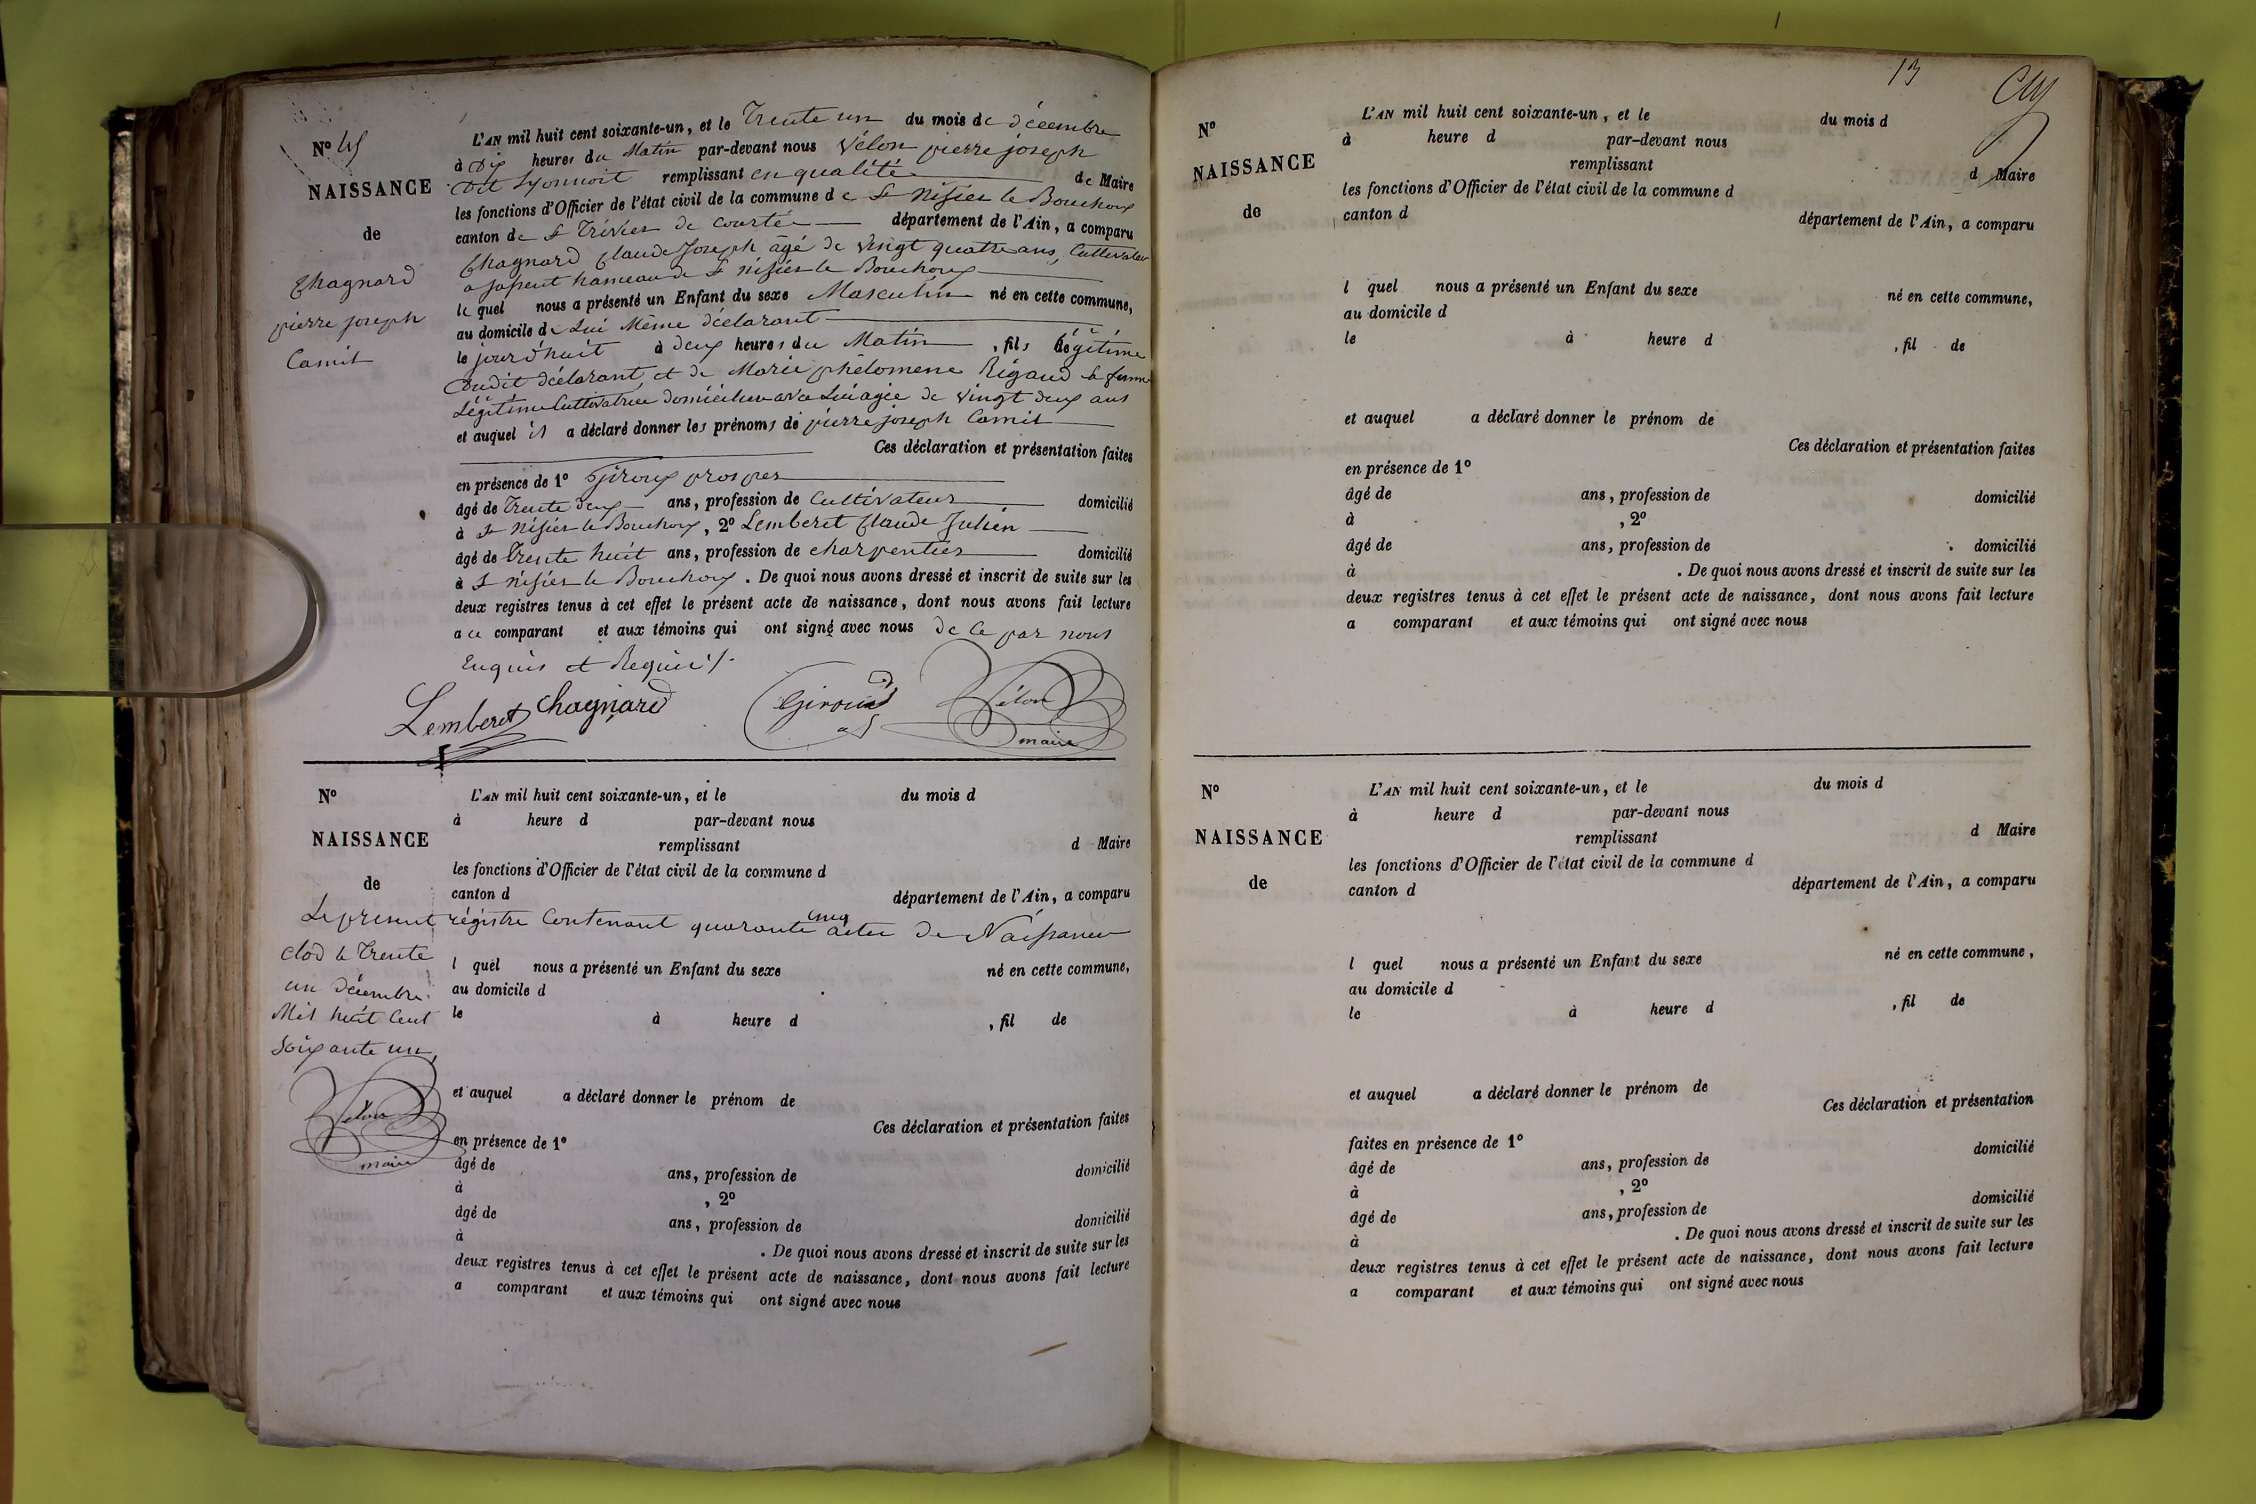 N° 45
NAISSANCE
de
Chagnard
pierre joseph
Camit
L'AN mil huit cent soixante-un, et le Trente un du mois de décembre
à Dix heures du Matin par-devant nous Vélon pierre joseph
Dit Lyonnoit remplissant en qualité de Maire
les fonctions d'Officier de l'état civil de la commune de St Nisier le Bouchoux
canton de St Trivier de Courte département de l'Ain, a comparu
Chagnard Claude Joseph âgé de Vingt quatre ans, Cultivateur
hameau de St nisier le Bouchoux
le quel nous a présenté un Enfant du sexe Masculin né en cette commune,
au domicile de Lui Même déclarant
le jour d'huit à deux heures du Matin, fils Légitime
Dudit déclarant, et de Marie phélomene Rigaud Sa femme
Légitime Cultivatrice domiciliée avec Lui agée de Vingt deux ans
et auquel il a déclaré donner les prénoms de pierre joseph Camit
Ces déclaration et présentation faites
en présence de 1° Giroux prosper
âgé de Trente deux ans, profession de Cultivateur domicilié
à St Nisier le Bouchoux, 2° Lemberet Claude Julien
âgé de Trente huit ans, profession de charpentier domicilié
à St nisier le Bouchoux. De quoi nous avons dressé et inscrit de suite sur les
deux registres tenus à cet effet le présent acte de naissance, dont nous avons fait lecture
a ce comparant et aux témoins qui ont signé avec nous de ce par nous
Enquis et Requis /.
Lemberet Chagnard Giroud Vélon
maire
N°
NAISSANCE
de
L'AN mil huit cent soixante-un, et le du mois d
à heure d par-devant nous
remplissant d Maire
les fonctions d'Officier de l'état civil de la commune d
canton d département de l'Ain, a comparu
Le présent régistre Contenant quarante cinq actes de Naissances
clod le Trente
un décembre
Mil huit Cent
Soixante un,
Vélon
maire
l quel nous a présenté un Enfant du sexe né en cette commune,
au domicile d
le à heure d , fil de
et auquel a déclaré donner le prénom de
Ces déclaration et présentation faites
en présence de 1°
âgé de ans, profession de domicilié
à , 2°
âgé de ans, profession de domicilié
à . De quoi nous avons dressé et inscrit de suite sur les
deux registres tenus à cet effet le présent acte de naissance, dont nous avons fait lecture
a comparant et aux témoins qui ont signé avec nous
13
N°
NAISSANCE
de
L'AN mil huit cent soixante-un, et le du mois d
à heure d par-devant nous
remplissant d Maire
les fonctions d'Officier de l'état civil de la commune d
canton d département de l'Ain, a comparu
l quel nous a présenté un Enfant du sexe né en cette commune,
au domicile d
le à heure d , fil de
et auquel a déclaré donner le prénom de
Ces déclaration et présentation faites
en présence de 1°
âgé de ans, profession de domicilié
à , 2°
âgé de ans, profession de domicilié
à . De quoi nous avons dressé et inscrit de suite sur les
deux registres tenus à cet effet le présent acte de naissance, dont nous avons fait lecture
a comparant et aux témoins qui ont signé avec nous
N°
NAISSANCE
de
L'AN mil huit cent soixante-un, et le du mois d
à heure d par-devant nous
remplissant d Maire
les fonctions d'Officier de l'état civil de la commune d
canton d département de l'Ain, a comparu
l quel nous a présenté un Enfant du sexe né en cette commune,
au domicile d
le à heure d , fil de
et auquel a déclaré donner le prénom de
Ces déclaration et présentation
faites en présence de 1° domicilié
âgé de ans, profession de
à , 2° domicilié
âgé de ans, profession de
à . De quoi nous avons dressé et inscrit de suite sur les
deux registres tenus à cet effet le présent acte de naissance, dont nous avons fait lecture
a comparant et aux témoins qui ont signé avec nous